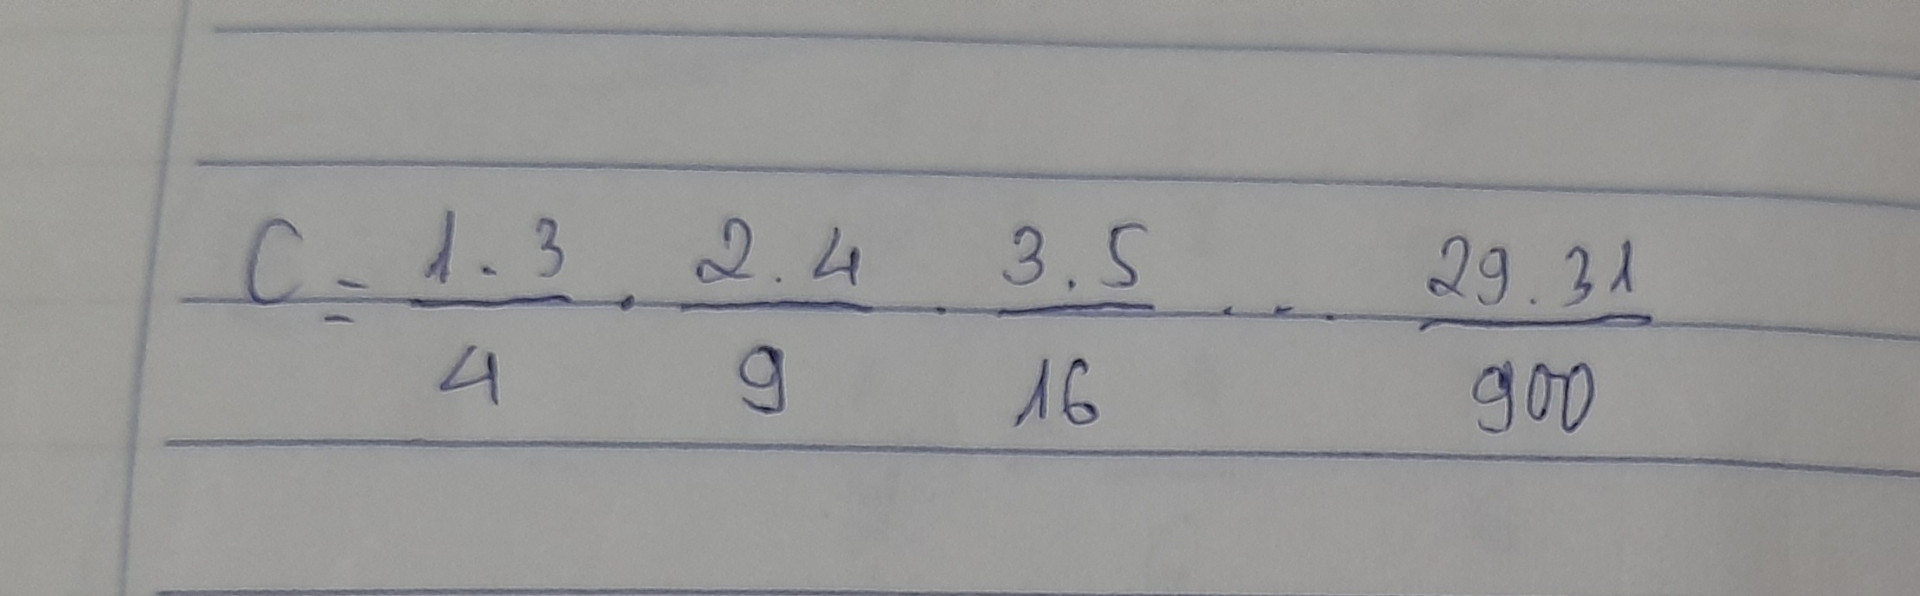 C = \frac{1.3}{4} . \frac{2.4}{9} . \frac{3.5}{16} ... \frac{29.31}{900}